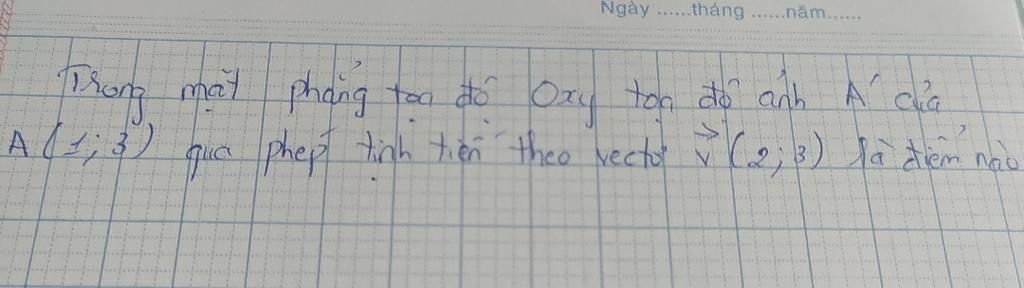 Ngày ......tháng ......năm......
Trong mặt phẳng tọa độ Oxy tọa độ ảnh A' của
A (1; 3) qua phép tịnh tiến theo vector v⃗ (2; 3) là điểm nào